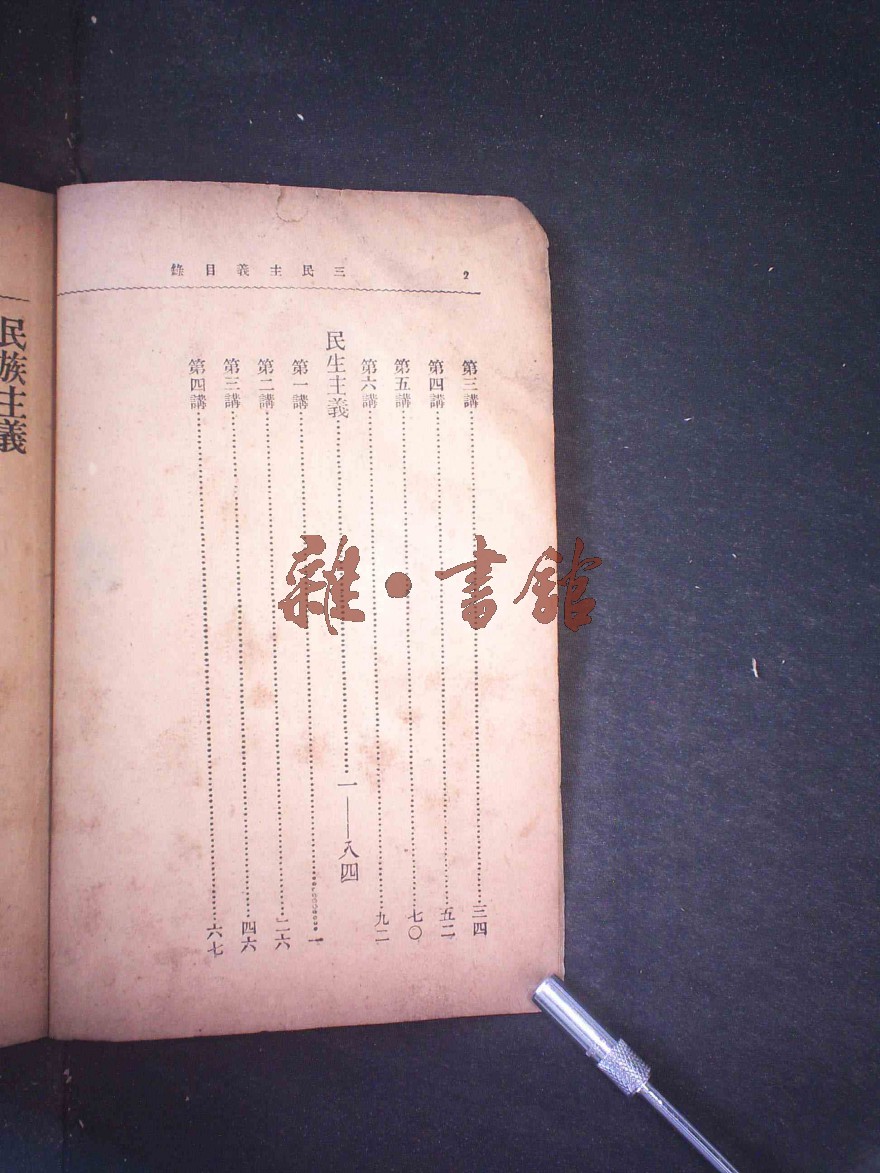 2 三民主義目錄
第三講 三四
第四講 五二
第五講 七〇
第六講 九二
民生主義 一——八四
第一講 一
第二講 二六
第三講 四六
第四講 六七
民族主義
雜·書館